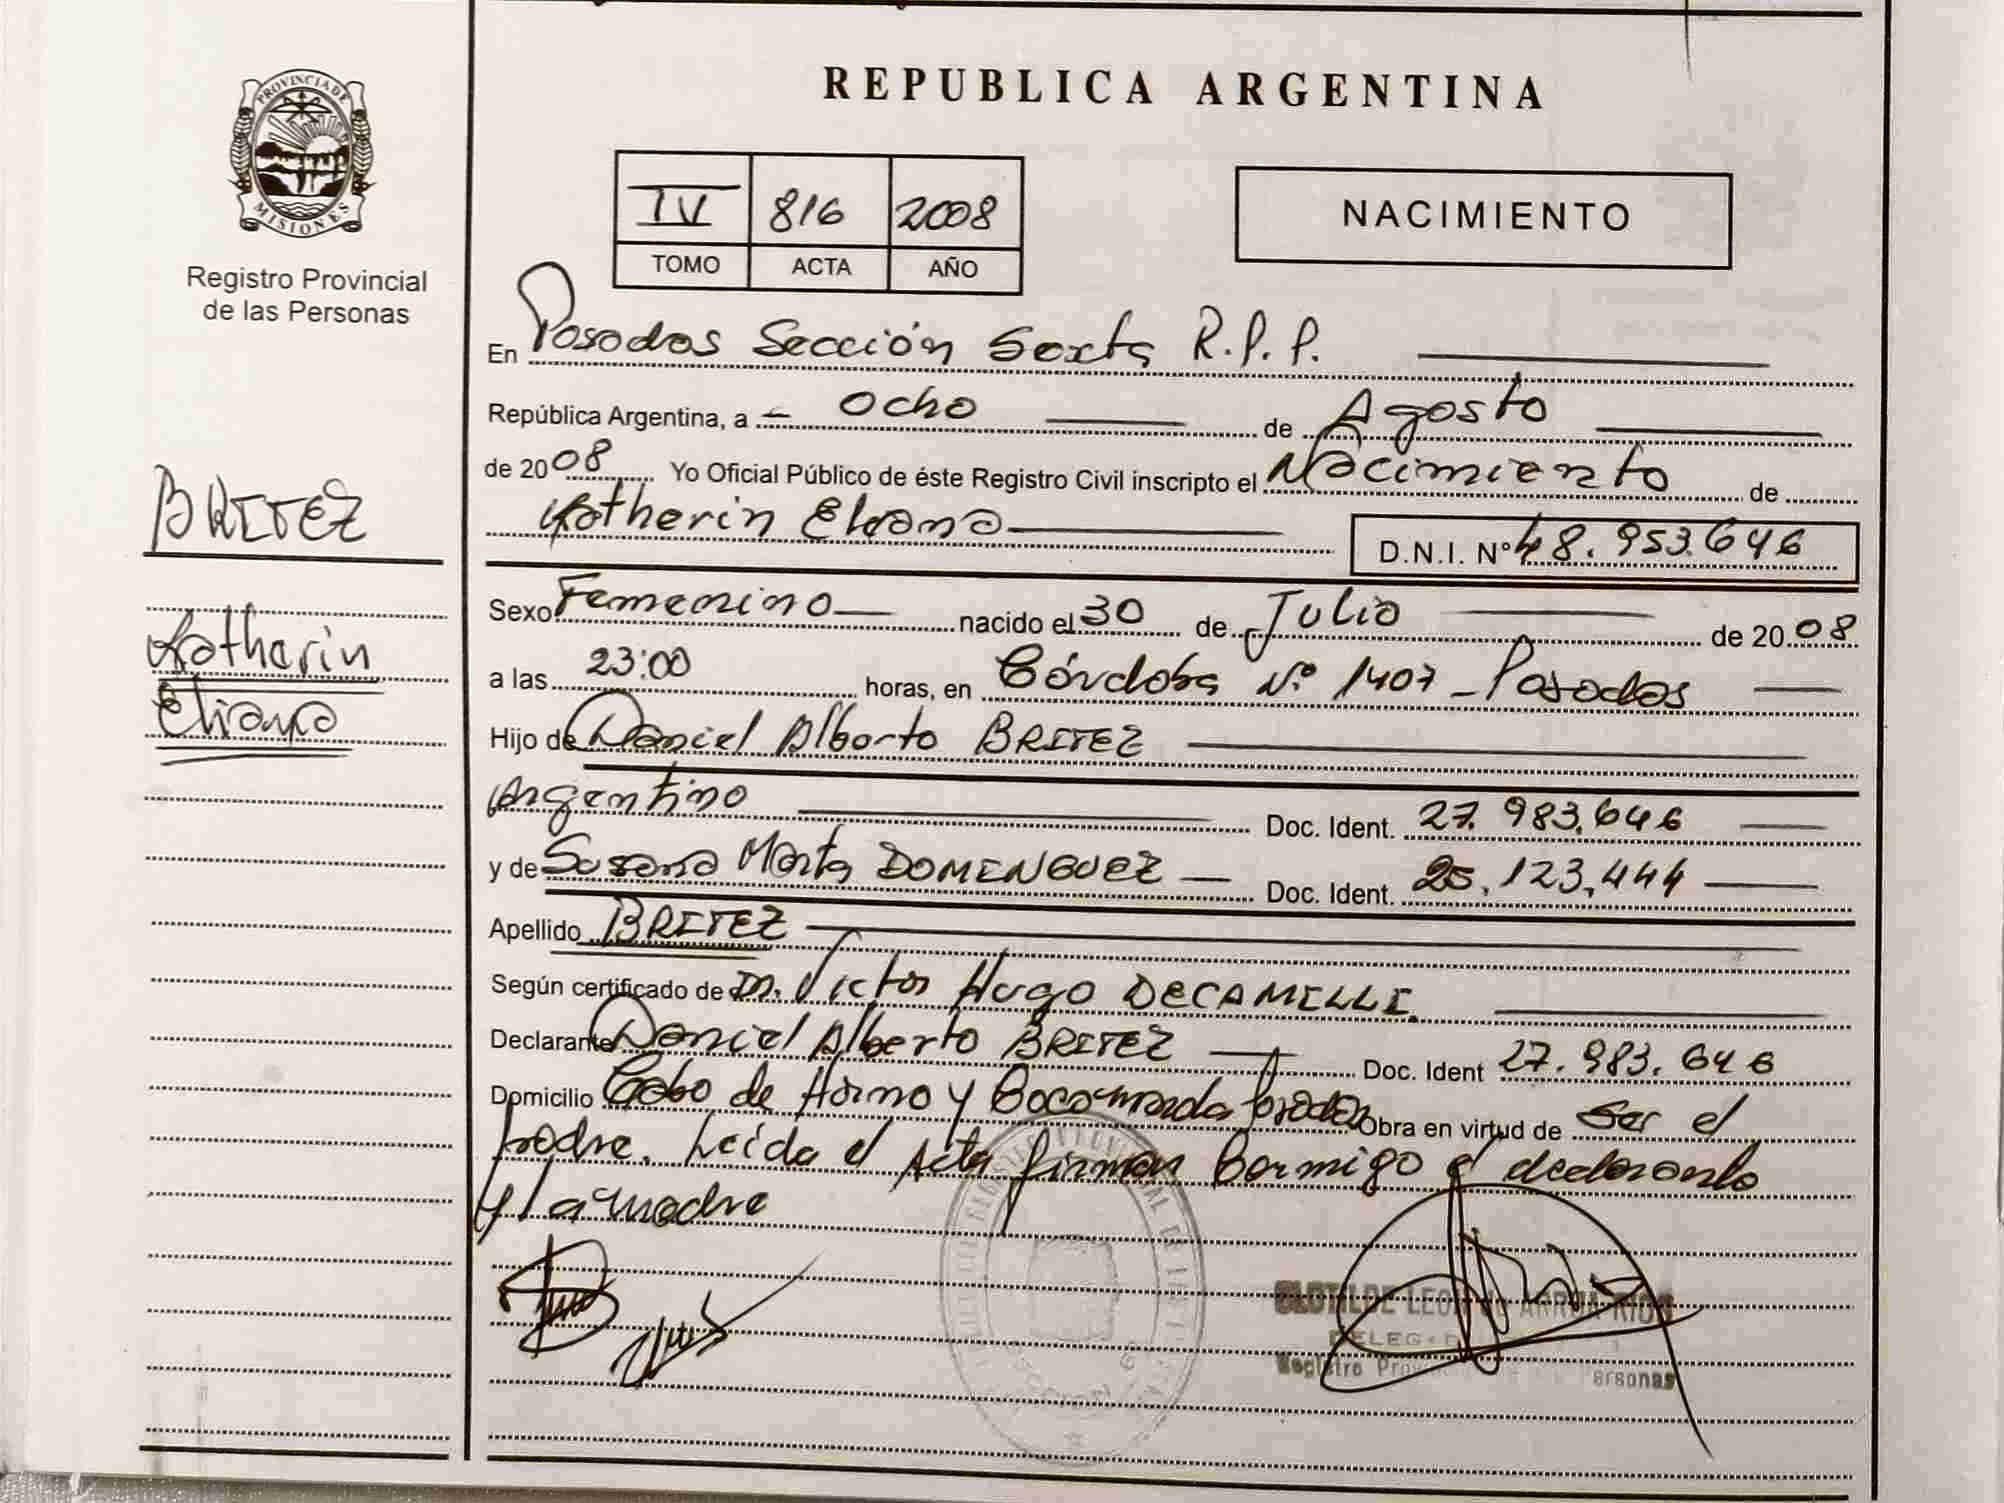 PROVINCIA DE
MISIONES
Registro Provincial
de las Personas
BRITEZ
Katherin
Eliana
REPUBLICA ARGENTINA
IV 816 2008
TOMO ACTA AÑO
NACIMIENTO
En Posadas Sección Sexta R.P.P.
República Argentina, a Ocho de Agosto
de 2008 Yo Oficial Público de éste Registro Civil inscripto el Nacimiento de
Katherin Eliana D.N.I. Nº 48.953.646
Sexo Femenino nacido el 30 de Julio de 2008
a las 23:00 horas, en Córdoba Nº 1407 - Posadas
Hijo de Daniel Alberto BRITEZ
Argentino Doc. Ident. 27.983.646
y de Susana Marta DOMINGUEZ Doc. Ident. 25.123.444
Apellido BRITEZ
Según certificado de Dr. Victor Hugo DECAMILLI.
Declarante Daniel Alberto BRITEZ Doc. Ident 27.983.646
Domicilio Cabo de Horno y Posadas Obra en virtud de Ser el
padre. Leída el Acta firman Conmigo el declarante
y la madre
CLOTILDE ARRUA RIOS
Registro